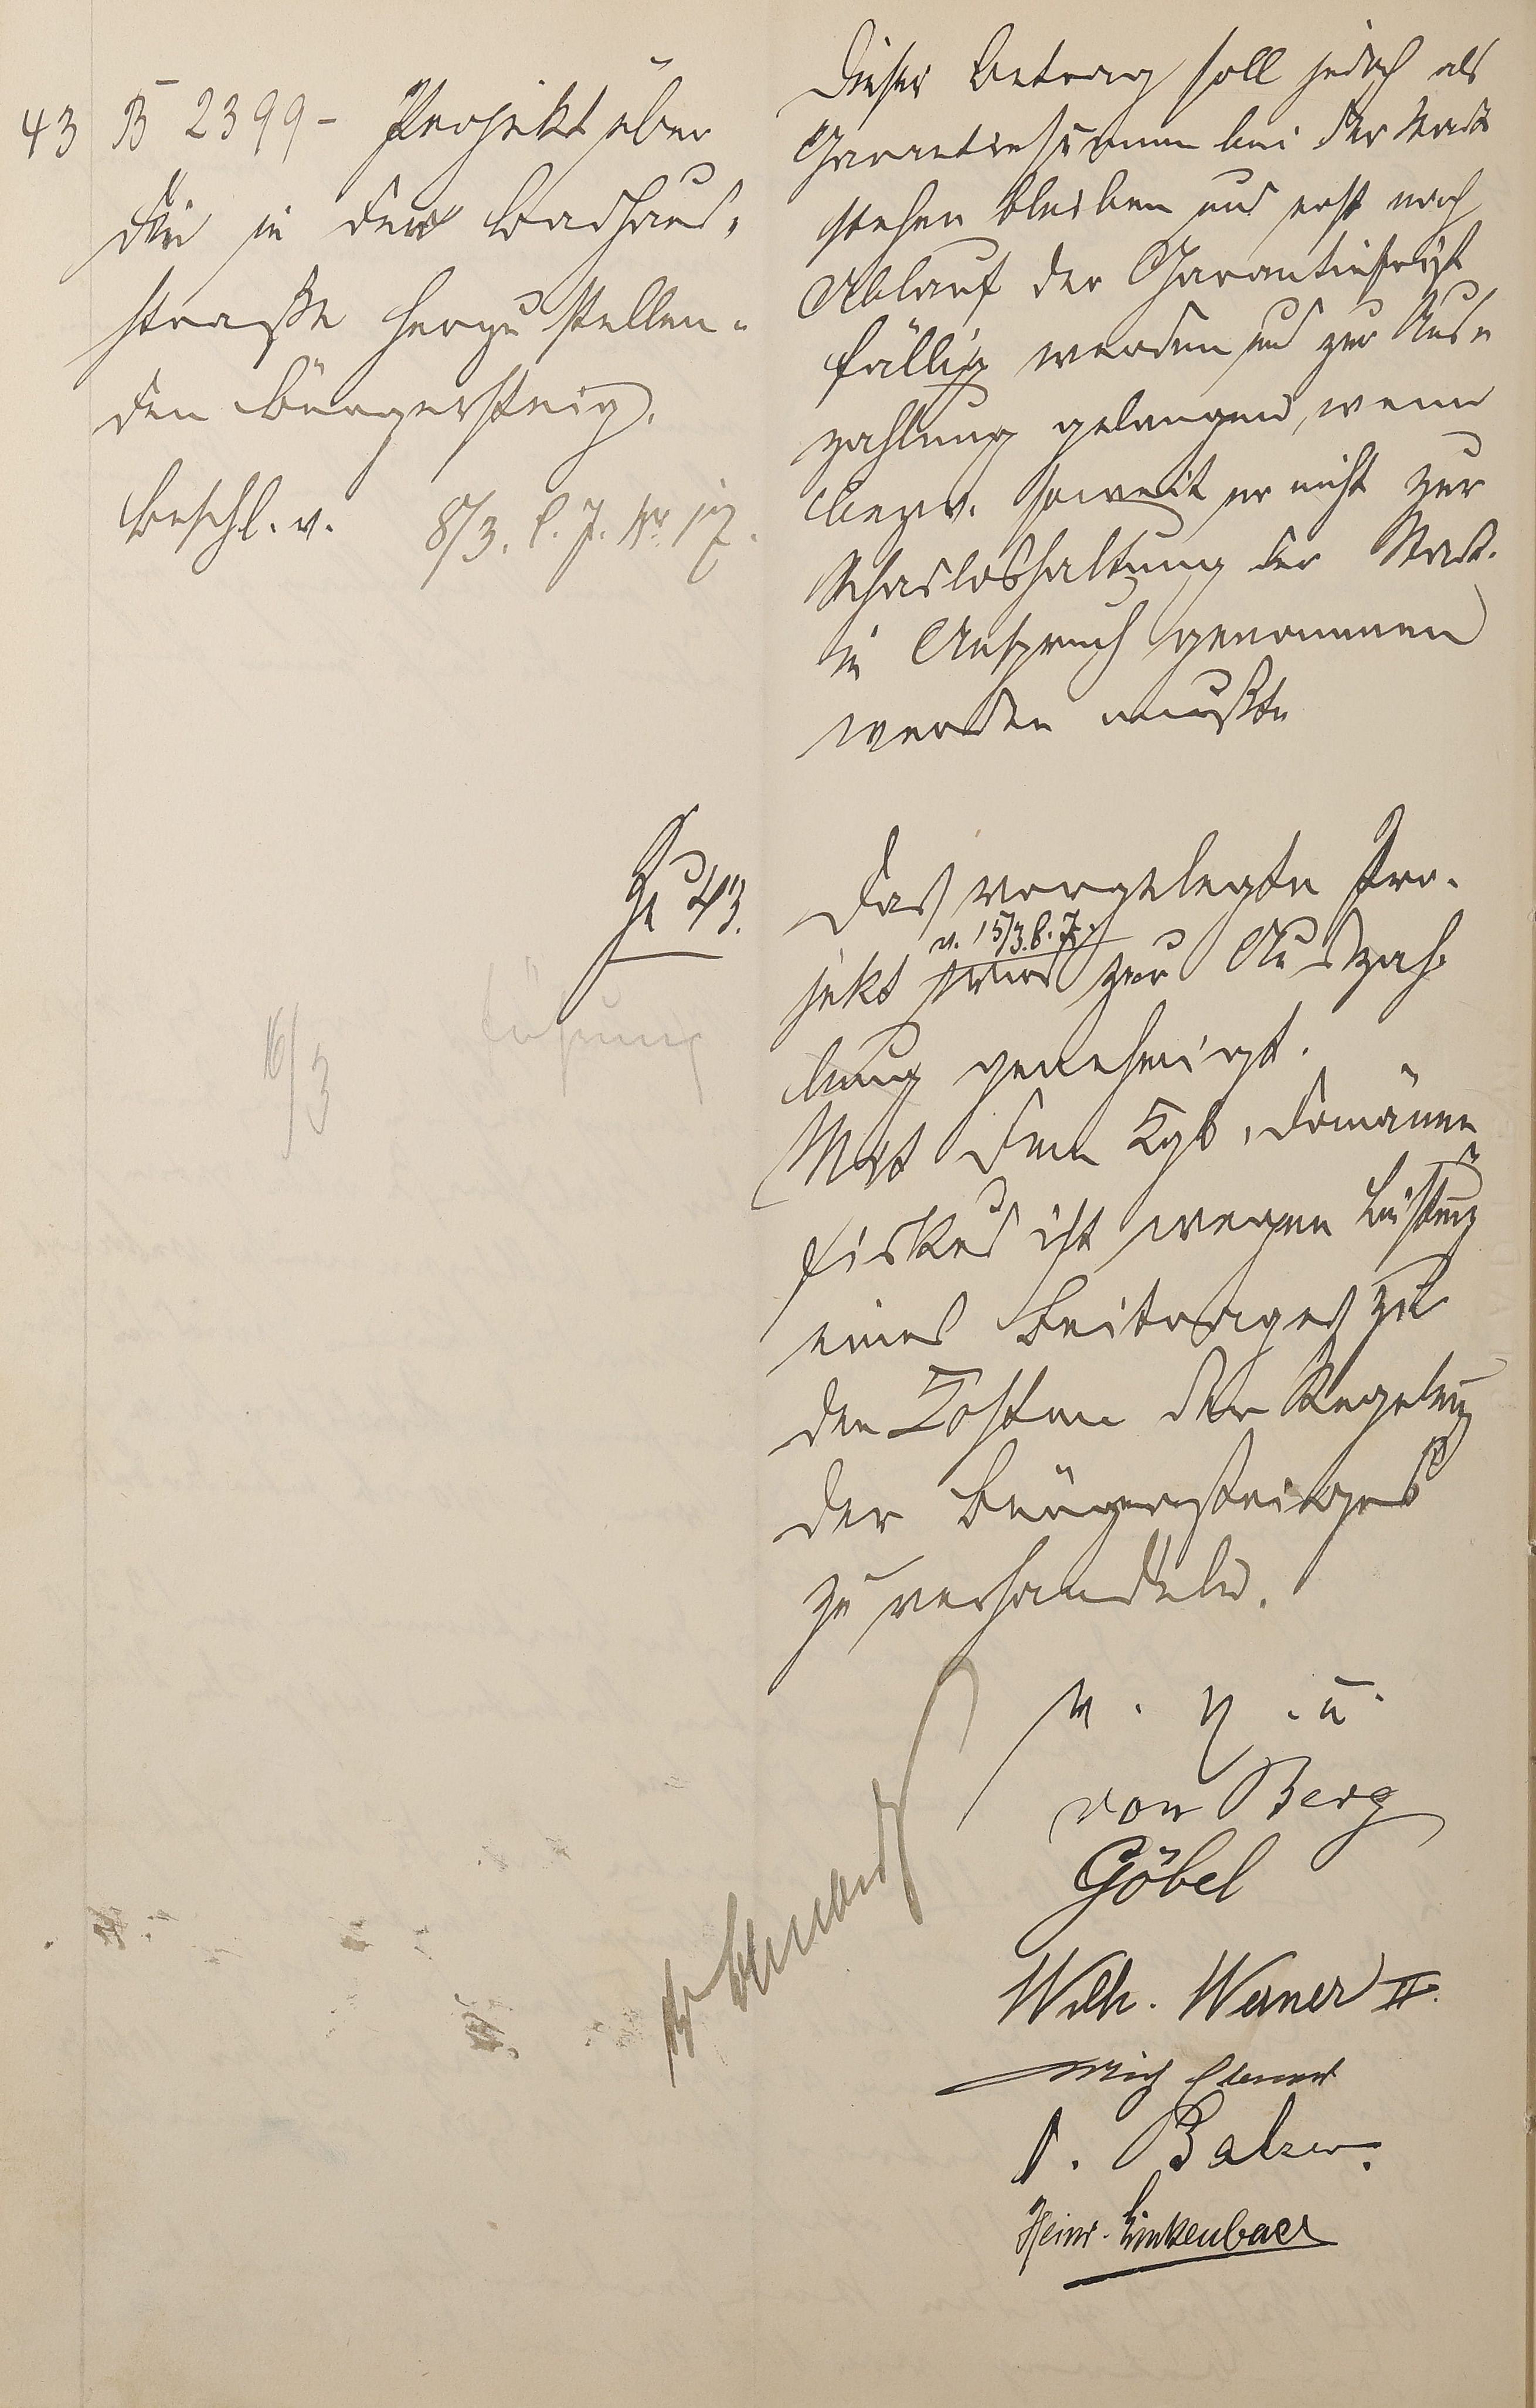 43 B 2399 - Projekt über
den in der Badhaus-
straße herzustellen-
den Bürgersteig.
Beschl. v. 8/3. l. J. Nr 17.
Dieser Betrag soll jedoch als
Garantiesumme bei der Stadt
stehen bleiben und erst nach
Ablauf der Garantiefrist
fällig werden und zur Aus-
zahlung gelangen, wenn
bezw. soweit er nicht zur
Schadloshaltung der Stadt
in Anspruch genommen
werden mußte
Zu 43.
Das vorgelegte Pro-
v. 15/3. l. J.
jekt wird zur Auszah-
lung genehmigt.
Mit dem Kgl. Domänen-
fiskus ist wegen Leistung
eines Beitrages zu
den Kosten der Regelung
des Bürgersteiges
zu verhandeln.
16/3
v. g. u.
von Berg
Göbel
Wilh. Werner II.
Balzer.
Heinr. Linkenbach